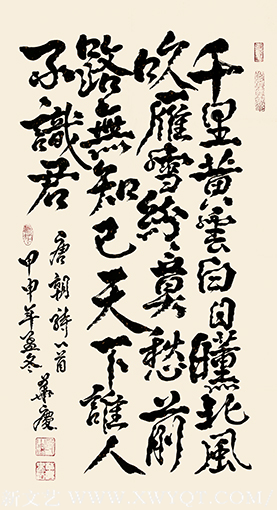 千里黄雲白日曛北風
吹雁雪紛々莫愁前
路無知己天下誰人
不識君
唐朝詩一首
甲申年孟冬 華慶